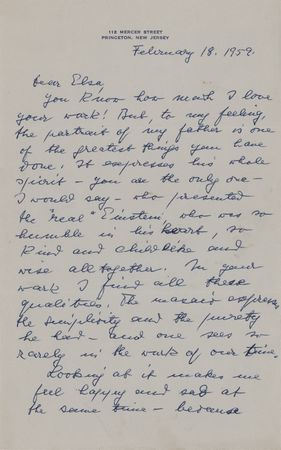 112 MERCER STREET
PRINCETON, NEW JERSEY
February 18. 1959.
Dear Elsa,
You know how much I love
your work! But, to my feeling,
the portrait of my father is one
of the greatest things you have
done. It expresses his whole
spirit – you are the only one –
I would say – who presented
the "real" Einstein, who was so
humble in his heart, so
kind and childlike and
wise all together. In your
work I find all these
qualities. The mosaic expresses
the simplicity and the purity
he had – and one sees so
rarely in the work of our time.
Looking at it makes me
feel happy and sad at
the same time – because